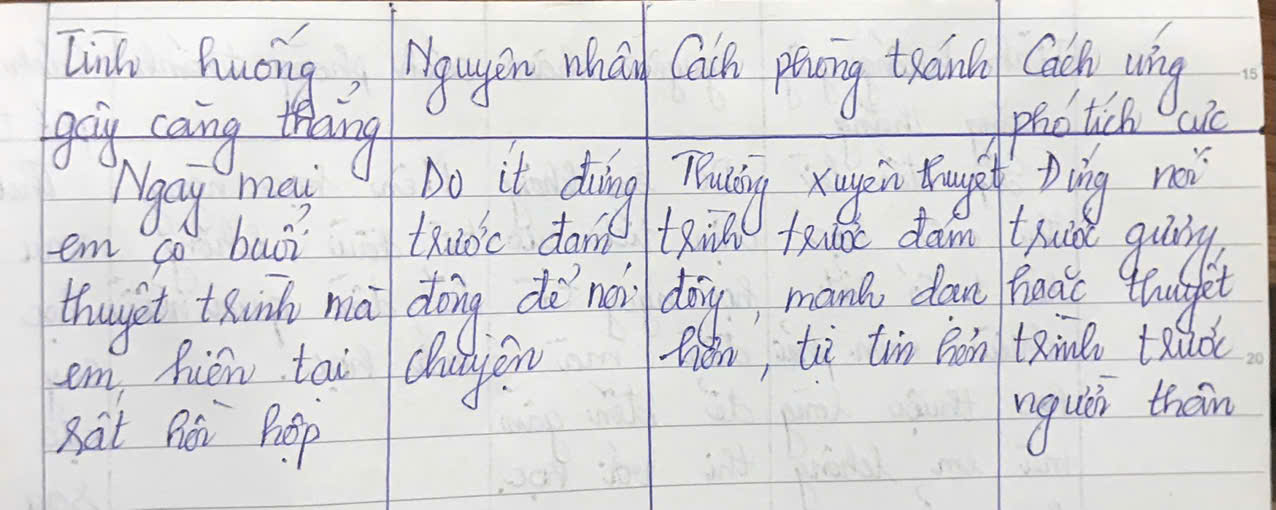 Tình huống
gây căng thẳng
Nguyên nhân
Cách phòng tránh
Cách ứng
phó tích cực
Ngày mai
em có buổi
thuyết trình mà
em hiện tại
rất hồi hộp
Do ít đứng
trước đám
đông để nói
chuyện
Thường xuyên thuyết
trình trước đám
đông, mạnh dạn
hơn, tự tin hơn
Đứng nói
trước gương,
hoặc thuyết
trình trước
người thân
15
20